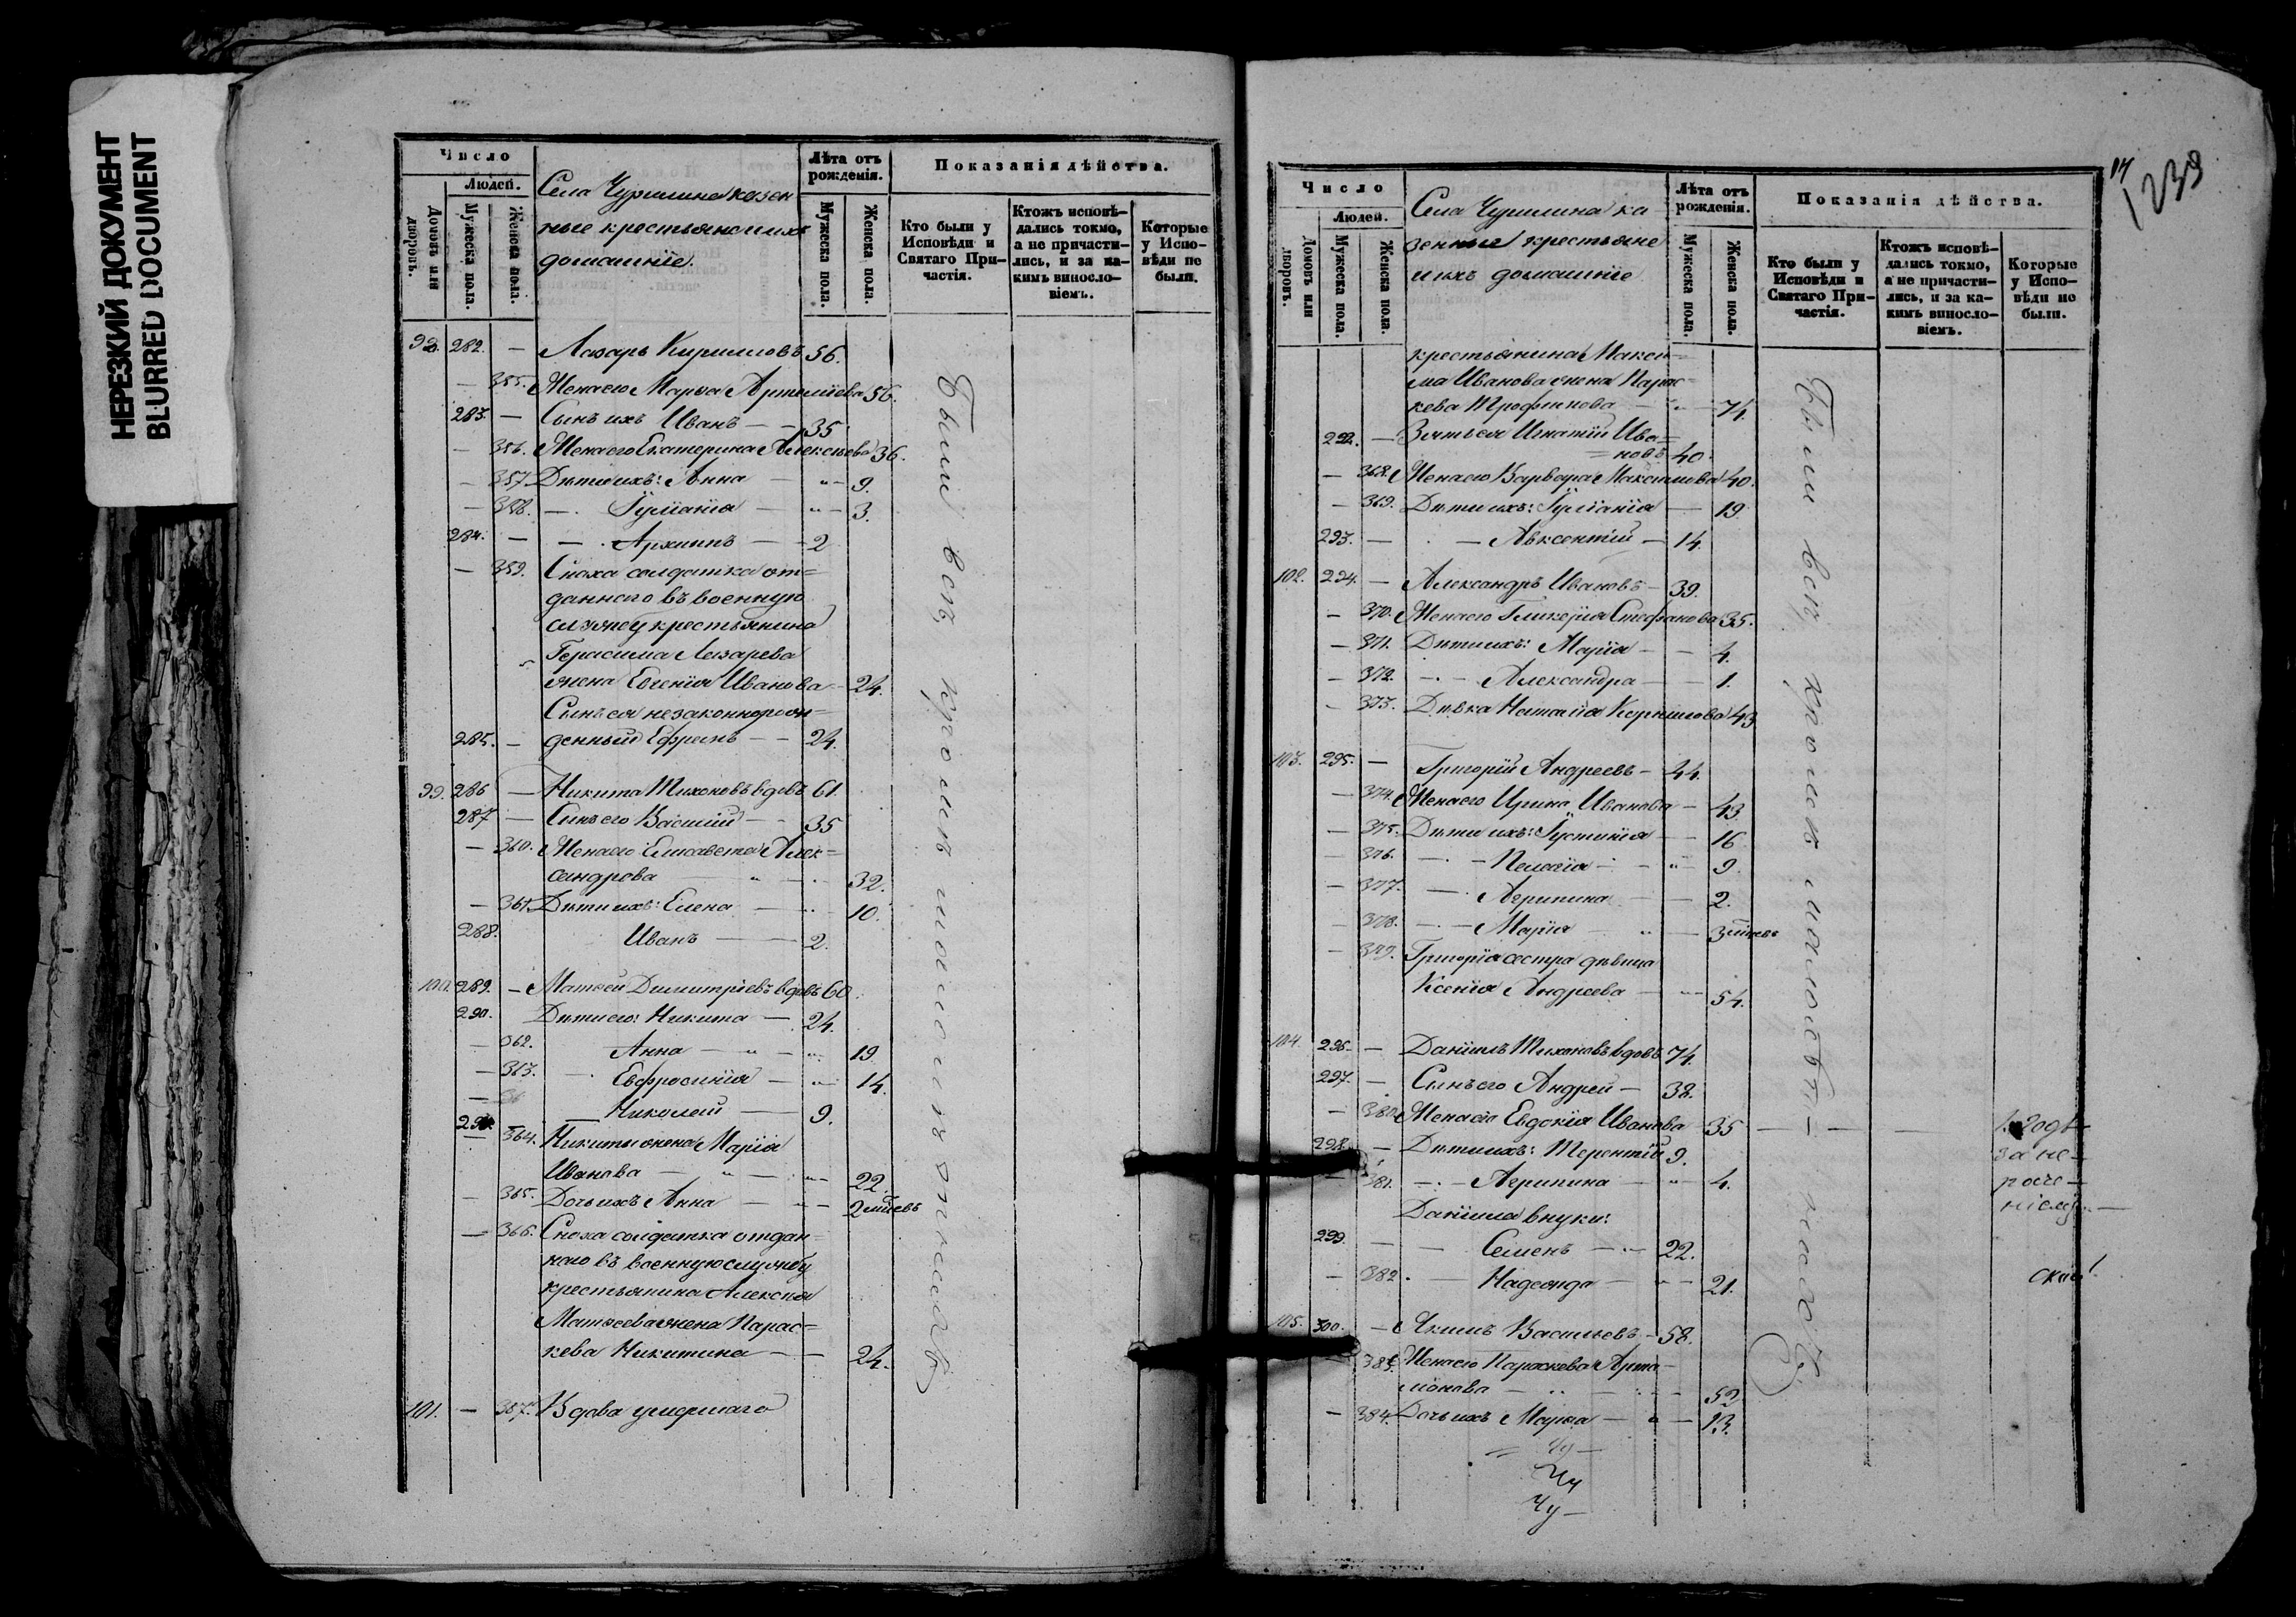 НЕРЕЗКИЙ ДОКУМЕНТ
BLURRED DOCUMENT
Число
Людей.
Домовъ или дворовъ.
Мужеска пола.
Женска пола.
Села Чурилина казен
ные крестьяне и ихъ
домашніе.
Лѣта отъ рожденія.
Мужеска пола.
Женска пола.
Показанія дѣйства.
Кто были у Исповѣди и Святаго Причастія.
Ктожъ исповѣдались токмо, а не причастились, и за какимъ винословіемъ.
Которые у Исповѣди не были.
98. 282. — Лазарь Кирилловъ 56.
— 355. Жена его Марѳа Артеміева 56.
283. — Сынъ ихъ Иванъ — 35
— 356. Жена его Екатерина Алексѣева 36.
— 357. Дѣти ихъ: Анна — 9.
— 358. — Іуліанія — 3.
284. — — Архипъ — 2
— 359. Сноха солдатка от=
даннаго въ военную
службу крестьянина
Герасима Лазарева
жена Евгенія Иванова — 24.
Сынъ ея незаконнорож=
285. — денный Ефремъ — 24.
99. 286 — Никита Тихоновъ вдовъ 61.
287 — Сынъ его Василій — 35
— 360. Жена его Елисавета Алек=
сандрова — 32.
— 361. Дѣти ихъ: Елена — 10.
288. Иванъ — 2.
100. 289. — Матѳей Димитріевъ вдовъ 60.
290. Дѣти его: Никита — 24.
— 362. Анна — 19
— 363. — Евфросинія — 14.
291. — Николай — 9.
— 364. Никиты жена Марія
Иванова — 22.
— 365. Дочь ихъ Анна — 2 мѣсяцевъ
— 366. Сноха солдатка отдан=
наго въ военную службу
крестьянина Алексѣя
Матѳеева жена Парас=
кева Никитина — 24.
101. — 367. Вдова умершаго
Были всѣ, кромѣ
14
233
Число
Людей.
Домовъ или дворовъ.
Мужеска пола.
Женска пола.
Села Чурилина ка
зенные крестьяне
и ихъ домашніе
Лѣта отъ рожденія.
Мужеска пола.
Женска пола.
Показанія дѣйства.
Кто были у Исповѣди и Святаго Причастія.
Ктожъ исповѣдались токмо, а не причастились, и за какимъ винословіемъ.
Которые у Исповѣди не были.
крестьянина Макси=
ма Иванова жена Парас=
кева Трофимова — 74.
292. — Зять ея Игнатій Ива=
новъ 40.
— 368. Жена его Варвара Максимова 40.
— 369. Дѣти ихъ: Іуліанія — 19
293. — — Авксентій — 14.
102. 294. — Александръ Ивановъ — 39.
— 370. Жена его Гликерія Стефанова 35.
— 371. Дѣти ихъ: Марія — 4.
— 372. — Александра — 1.
— 373. Дѣвка Наталія Корнилова 43
103. 295. — Григорій Андреевъ — 44.
— 374. Жена его Ирина Иванова — 43
— 375. Дѣти ихъ: Іустинія — 16
— 376. — Пелагія — 9.
— 377. — Агрипина — 2.
— 378. — Марія — 3 мѣсяцевъ
— 379. Григорія сестра дѣвица
Ксенія Андреева — 54.
104. 296. — Даніилъ Тихоновъ вдовъ 74.
297. — Сынъ его Андрей — 38.
— 380. Жена его Евдокія Иванова 35 — — — 1. годъ
за не
раче
ніемъ
298. — Дѣти ихъ: Терентій 9.
— 381. — Агрипина — 4.
Даніила внуки:
299. — — Семенъ — 22.
— 382. — Надежда — 21.
105. 300. — Якимъ Васильевъ — 58.
— 383. Жена его Параскева Арта=
монова — 52
— 384. Дочь ихъ Марѳа — 13.
Чу —
Чу
Чу —
Были всѣ, кромѣ